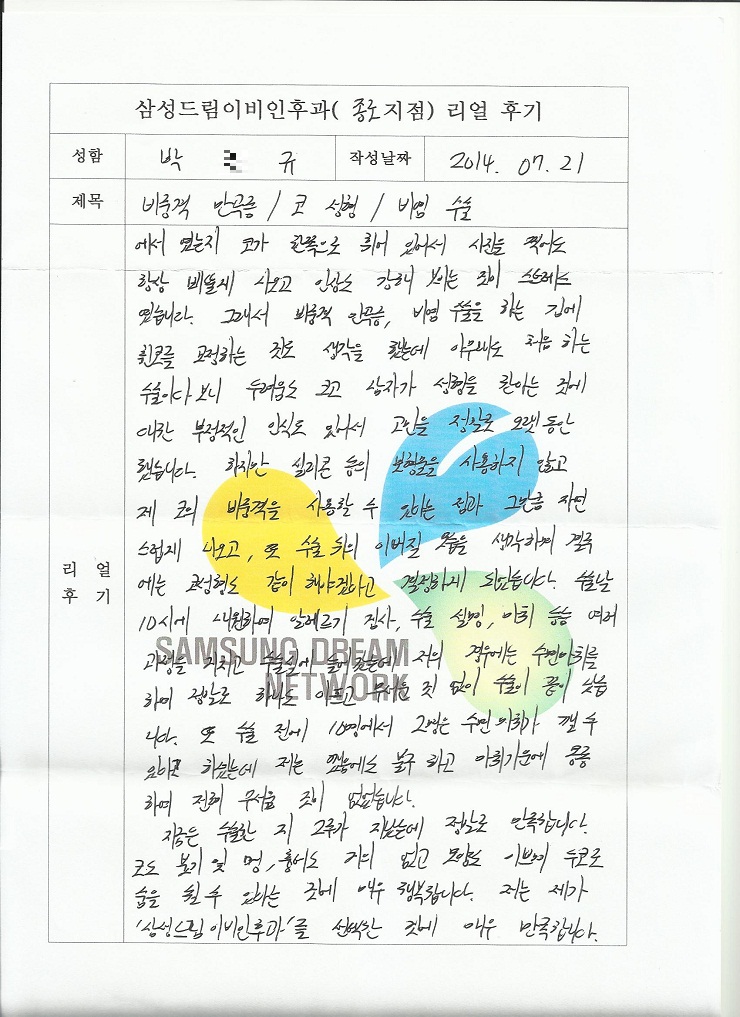 삼성드림이비인후과( 종로지점) 리얼 후기
성함 박 규 작성날짜 2014. 07. 21
제목 비중격 만곡증 / 코 성형 / 비염 수술
에서 였는지 코가 한쪽으로 휘어 있어서 사진을 찍어도
항상 삐뚤게 나오고 인상도 강해 보이는 것이 스트레스
였습니다. 그래서 비중격 만곡증, 비염 수술을 하는 김에
휜코를 교정하는 것도 생각을 했는데 아무래도 처음 하는
수술이다 보니 두려움도 크고 남자가 성형을 한다는 것에
대한 부정적인 인식도 있어서 고민을 정말로 오랫동안
했습니다. 하지만 실리콘 등의 보형물을 사용하지 않고
제 코의 비중격을 사용할 수 있다는 점과 그만큼 자연
스럽게 나오고, 또 수술 후의 이뻐질 모습을 생각하여 결국
에는 코성형도 같이 해야겠다고 결정하게 되었습니다. 수술날
10시에 내원하여 알레르기 검사, 수술 설명, 마취 등등 여러
과정을 거치고 수술실에 들어갔는데 저의 경우에는 수면마취를
하여 정말로 하나도 아프고 무서운 것 없이 수술이 끝이 났습
니다. 또 수술 전에 10명에서 2명은 수면마취가 깰 수
있다고 하셨는데 저는 깼음에도 불구 하고 마취기운에 몽롱
하여 전혀 무서울 것이 없었습니다.
지금은 수술한 지 2주가 지났는데 정말로 만족합니다.
코도 붓기 및 멍, 흉터도 거의 없고 모양도 이쁘며 두코로
숨을 쉴 수 있다는 것에 매우 행복합니다. 저는 제가
'삼성드림이비인후과'를 선택한 것에 매우 만족합니다.
리 얼
후 기
SAMSUNG DREAM
NETWORK